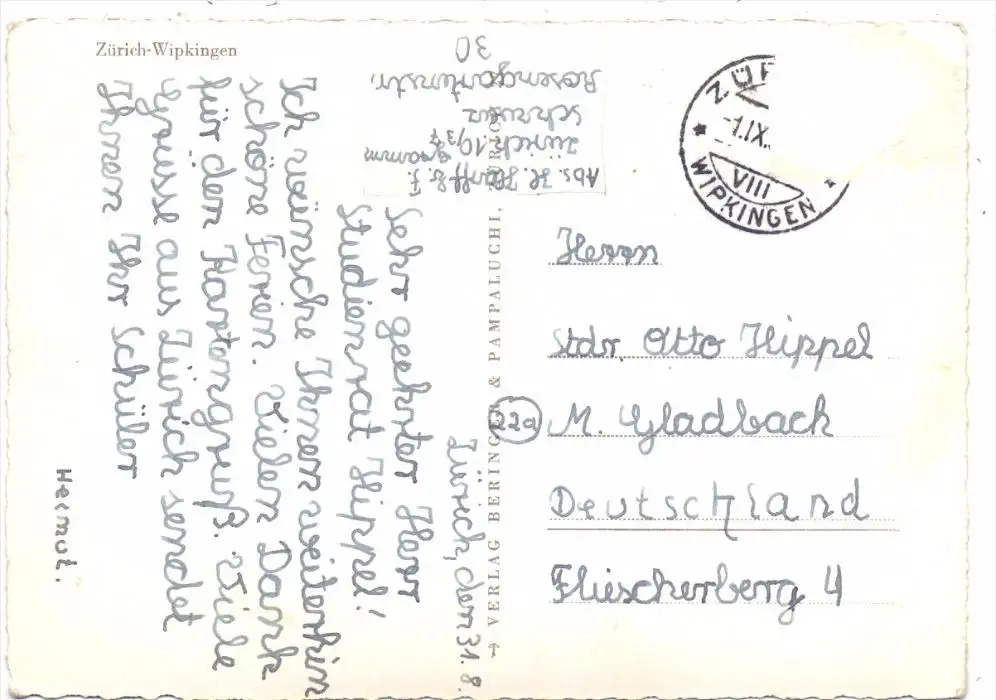 Zürich-Wipkingen
Abs. H. Hanff b. F.
gramm
Zürich 10/37
Schweiz
Rosengartenstr.
30
ZÜR
-1.IX.
VIII
WIPKINGEN
Zürich, den 31.8.
Sehr geehrter Herr
Studienrat Hippel!
Ich wünsche Ihnen weiterhin
schöne Ferien. Vielen Dank
für den Kartengruß. Viele
Grüsse aus Zürich sendet
Ihnen Ihr Schüler
Helmut.
VERLAG BERINGER & PAMPALUCHI, ZÜRICH
Herrn
Stdr. Otto Hippel
22a M. Gladbach
Deutschland
Fliescherberg 4